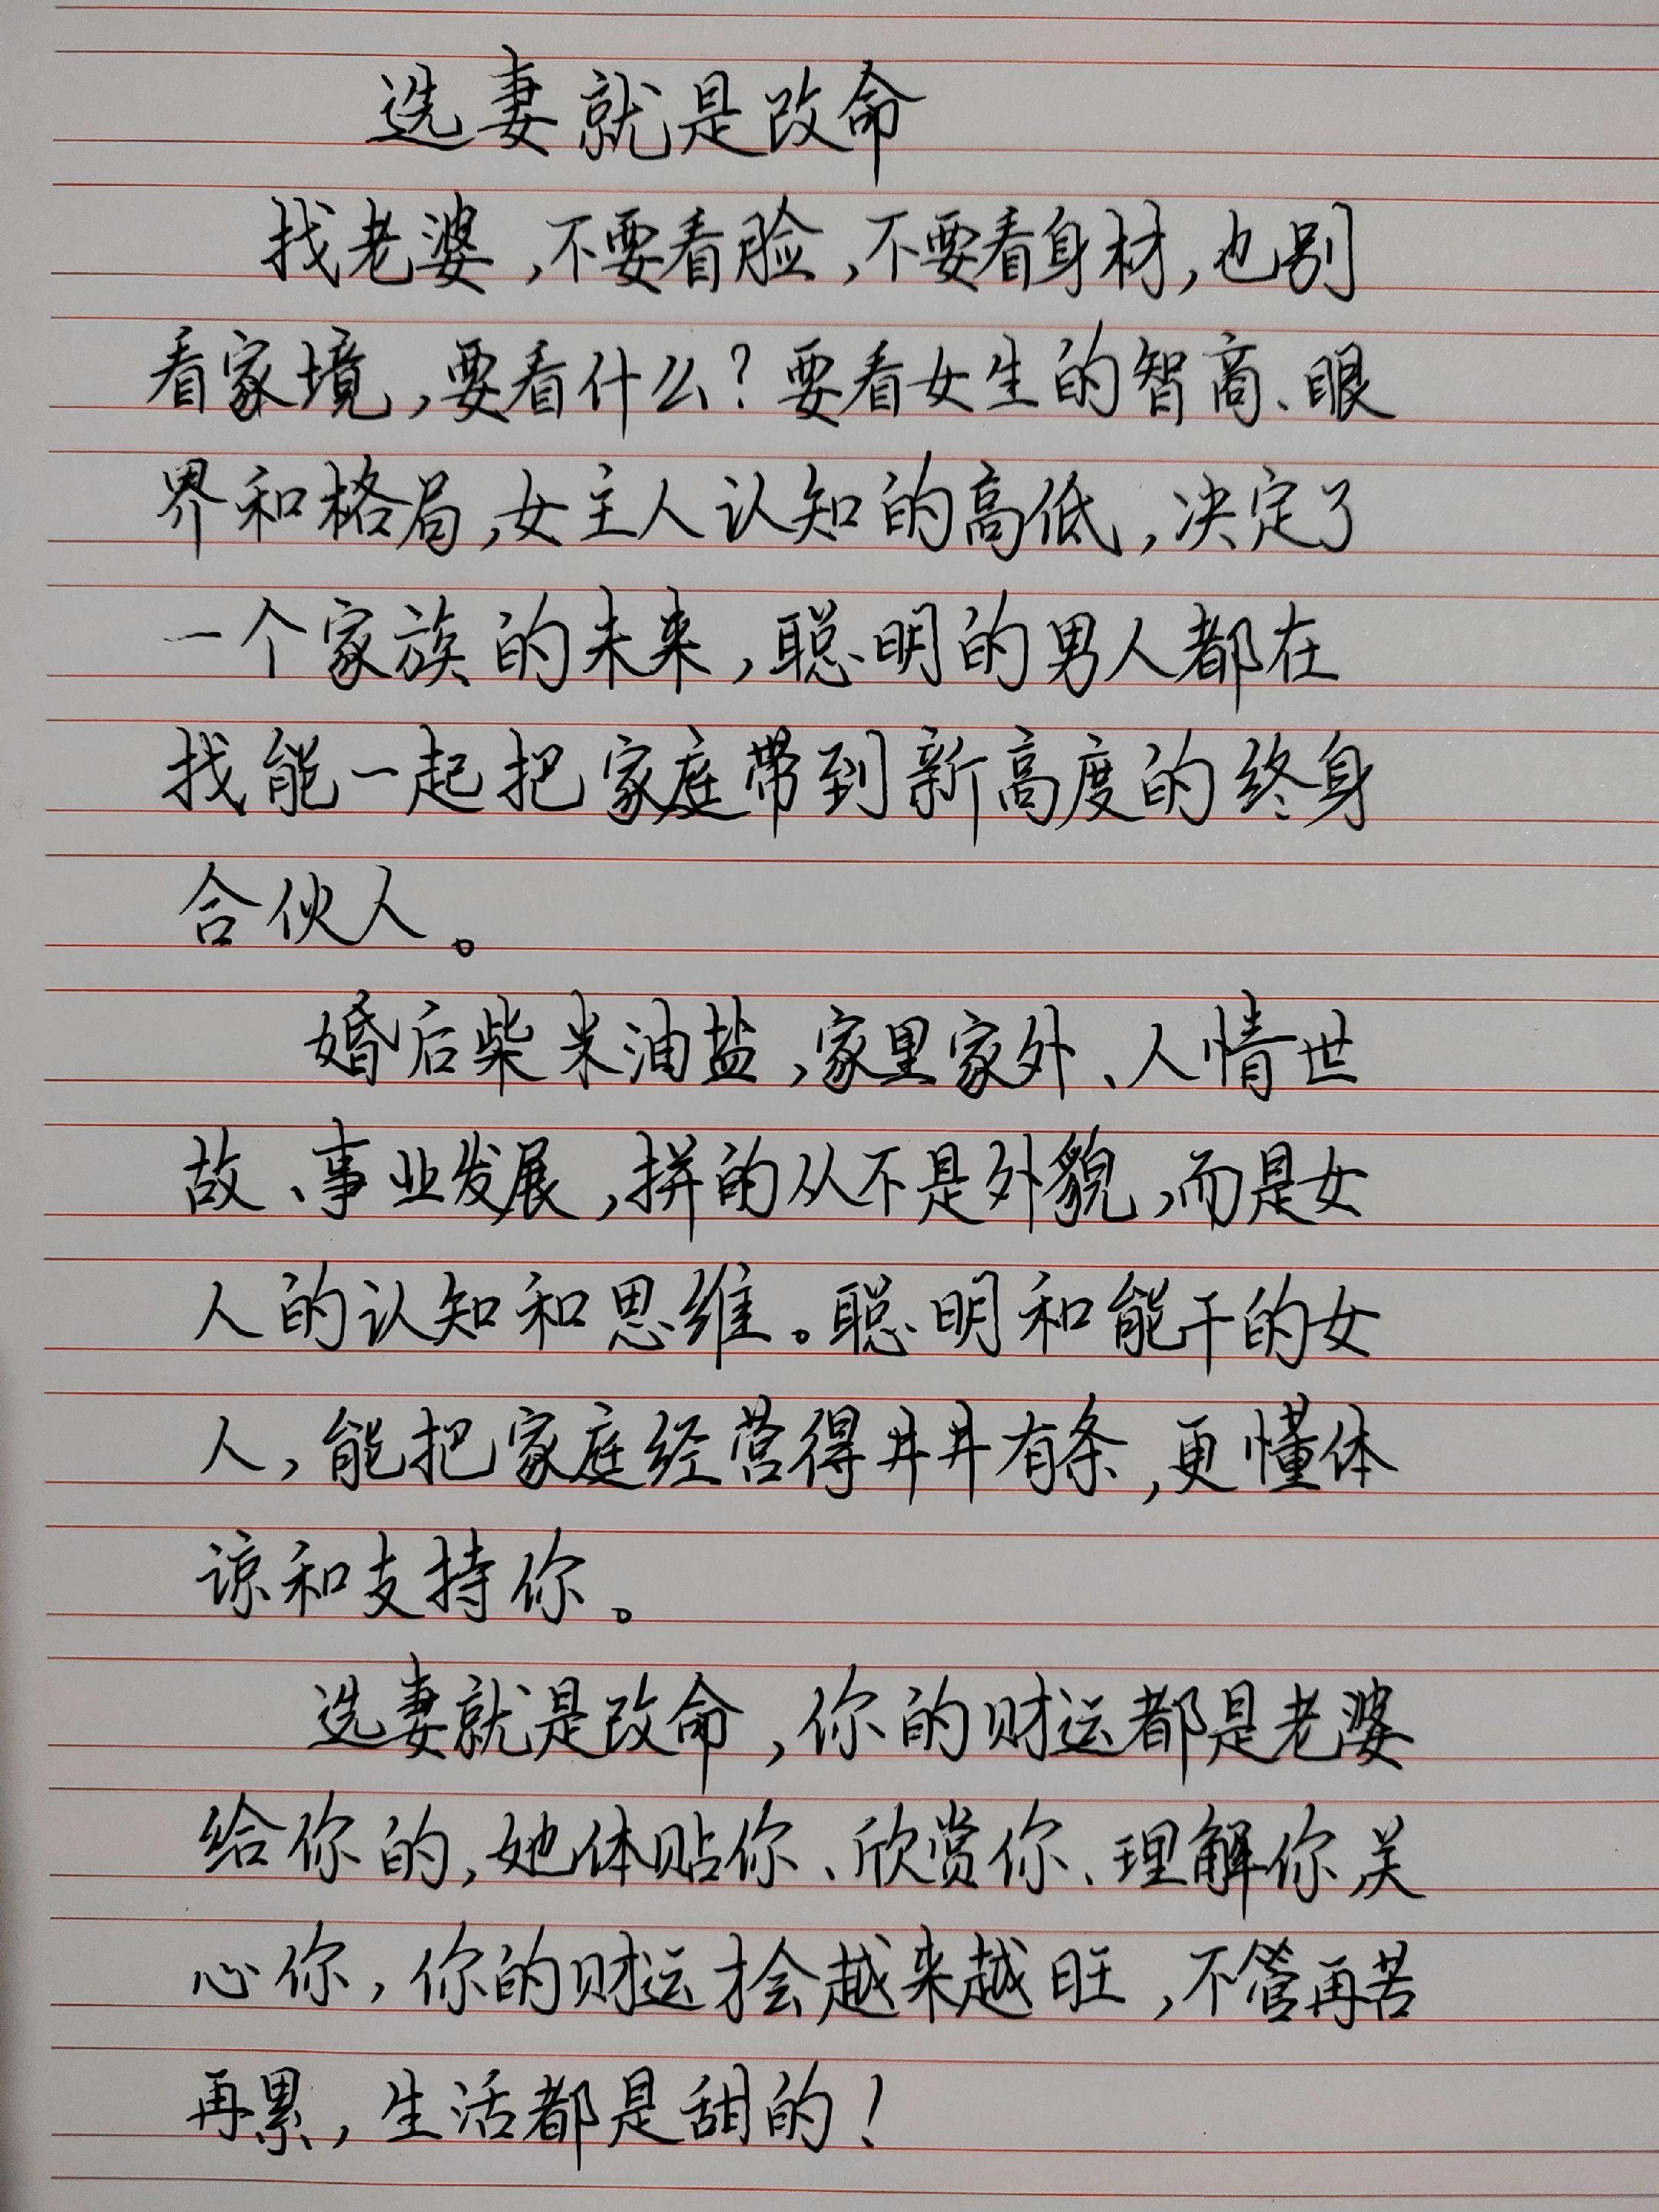 选妻就是改命
找老婆,不要看脸,不要看身材,也别
看家境,要看什么?要看女生的智商、眼
界和格局,女主人认知的高低,决定了
一个家族的未来,聪明的男人都在
找能一起把家庭带到新高度的终身
合伙人。
婚后柴米油盐,家里家外、人情世
故、事业发展,拼的从不是外貌,而是女
人的认知和思维。聪明和能干的女
人,能把家庭经营得井井有条,更懂体
谅和支持你。
选妻就是改命,你的财运都是老婆
给你的,她体贴你、欣赏你、理解你,关
心你,你的财运才会越来越旺,不管再苦
再累,生活都是甜的!